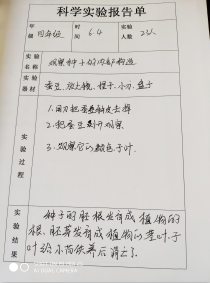 科学实验报告单
年级 四年级 时间 6.4 实验人数 2人
实验名称 观察种子的内部构造
实验器材 蚕豆、放大镜、镊子、小刀、盘子
实验过程
1.用刀把蚕豆种皮去掉
2.把蚕豆剥开观察
3.观察它的颜色子叶
实验结果
种子的胚根发育成植物的
根、胚芽发育成植物的茎叶、子
叶给小苗供养后消亡了